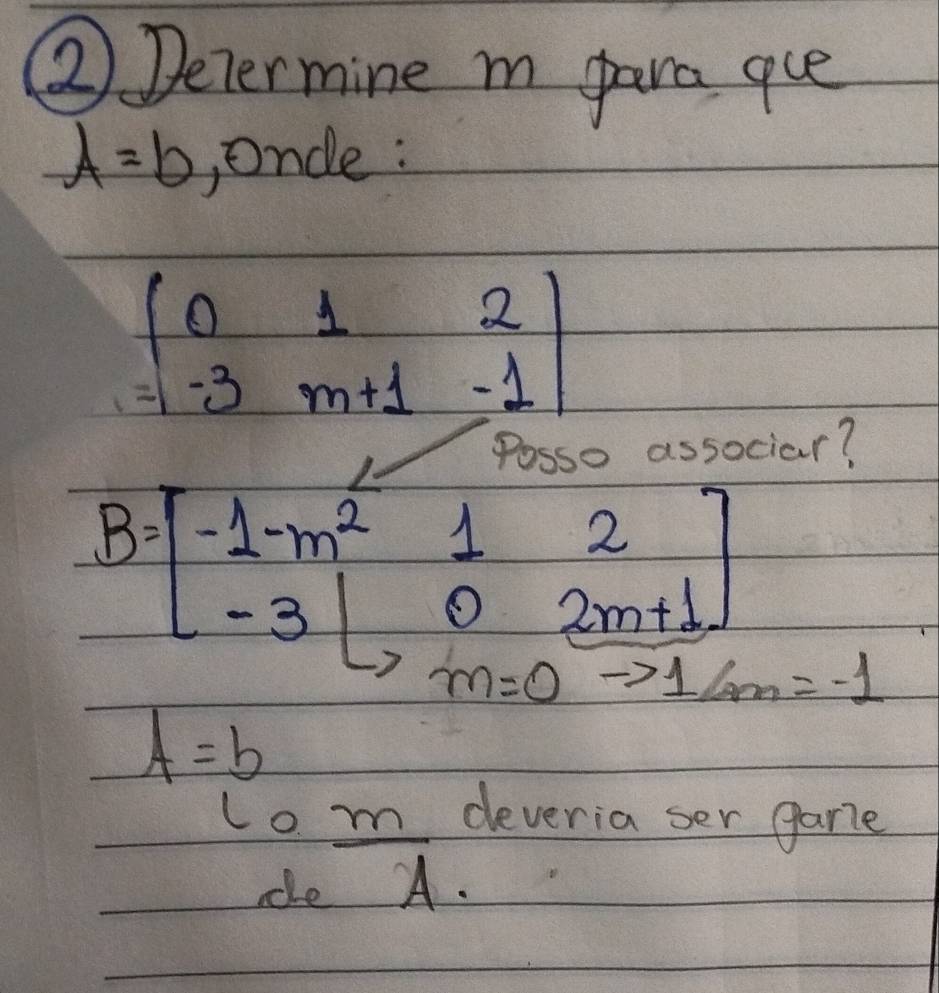 ② Determine m para que
A=b, onde:
= | 0 1 2 |
| -3 m+1 -1 |
Posso associar?
B= [ -1-m² 1 2 ]
[ -3 0 2m+1 ]
↳ m=0 → 1 / m=-1
A=b
↳ o m deveria ser parte
de A.